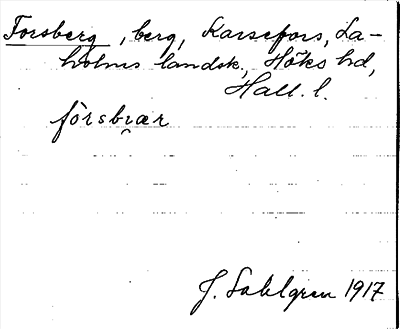 Forsberg, berg, Karsefors, La-
holms landsk., Höks hd,
Hall. l.
fòrsbꞮ̯ær
J. Sahlgren 1917